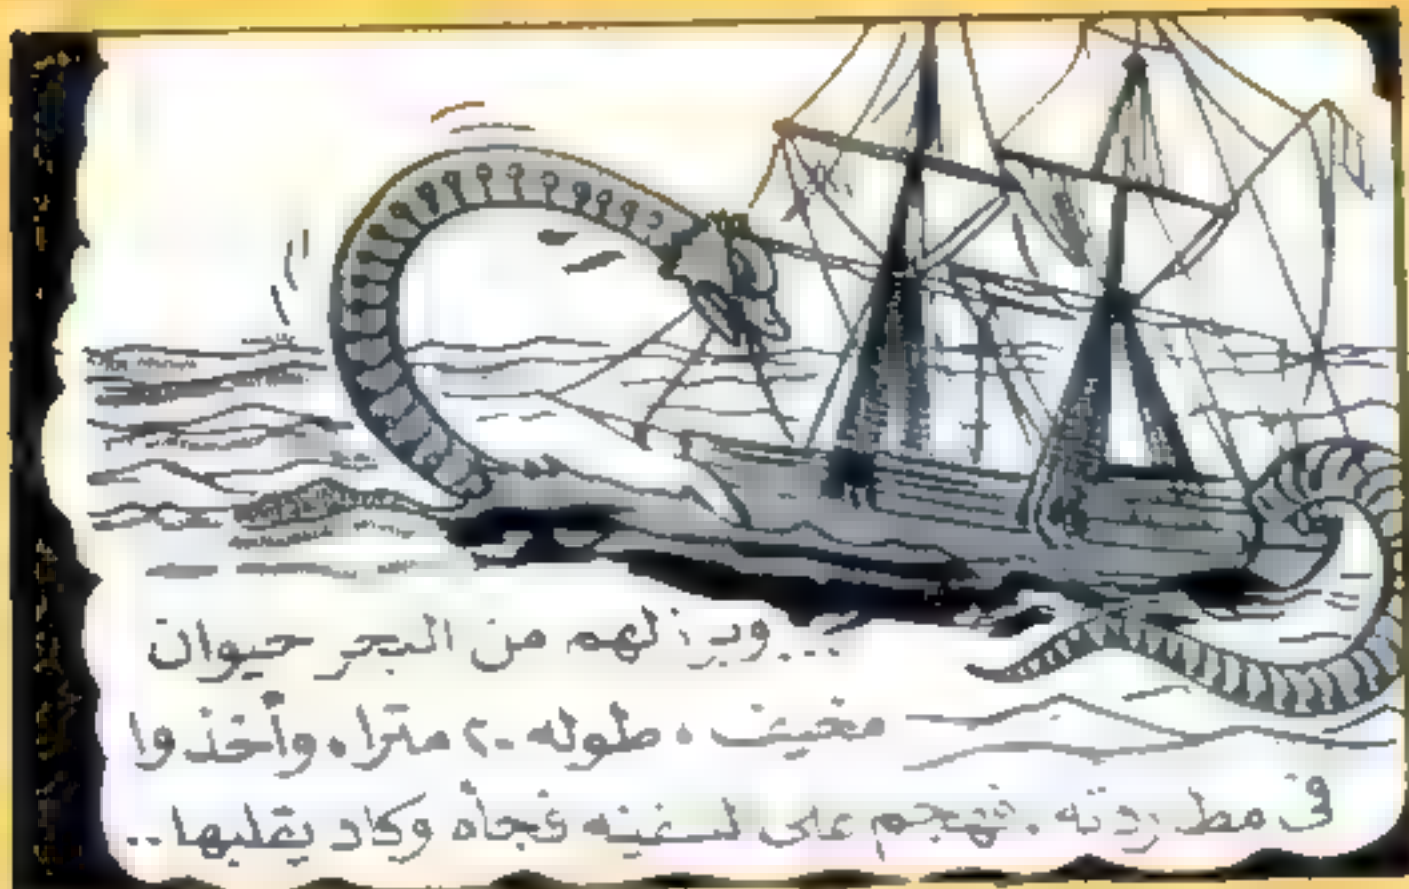 ...وبرز لهم من البحر حيوان
مخيف، طوله ٢٠ مترا، وأخذوا
فى مطاردته، فهجم على السفينه فجأه وكاد يقلبها..